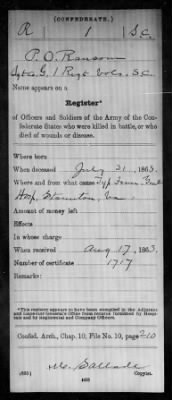 (CONFEDERATE.)
R | 1 | S.C.
P. O. Ransom
Co. G, 1 Regt Vols, S.C.
Name appears on a
Register*
of Officers and Soldiers of the Army of the Con-
federate States who were killed in battle, or who
died of wounds or disease.
Where born
When deceased July 31, 1863.
Where and from what cause Typ.
Hosp, Staunton, Va
Amount of money left
Effects
In whose charge
When received Aug 17, 1863.
Number of certificate 1717
Remarks:
*This register appears to have been compiled in the Adjutant
and Inspector General's Office from returns furnished by Hospi-
tals and by Regimental and Company Officers.
Confed. Arch., Chap. 10, File No. 10, page 210
Copyist.